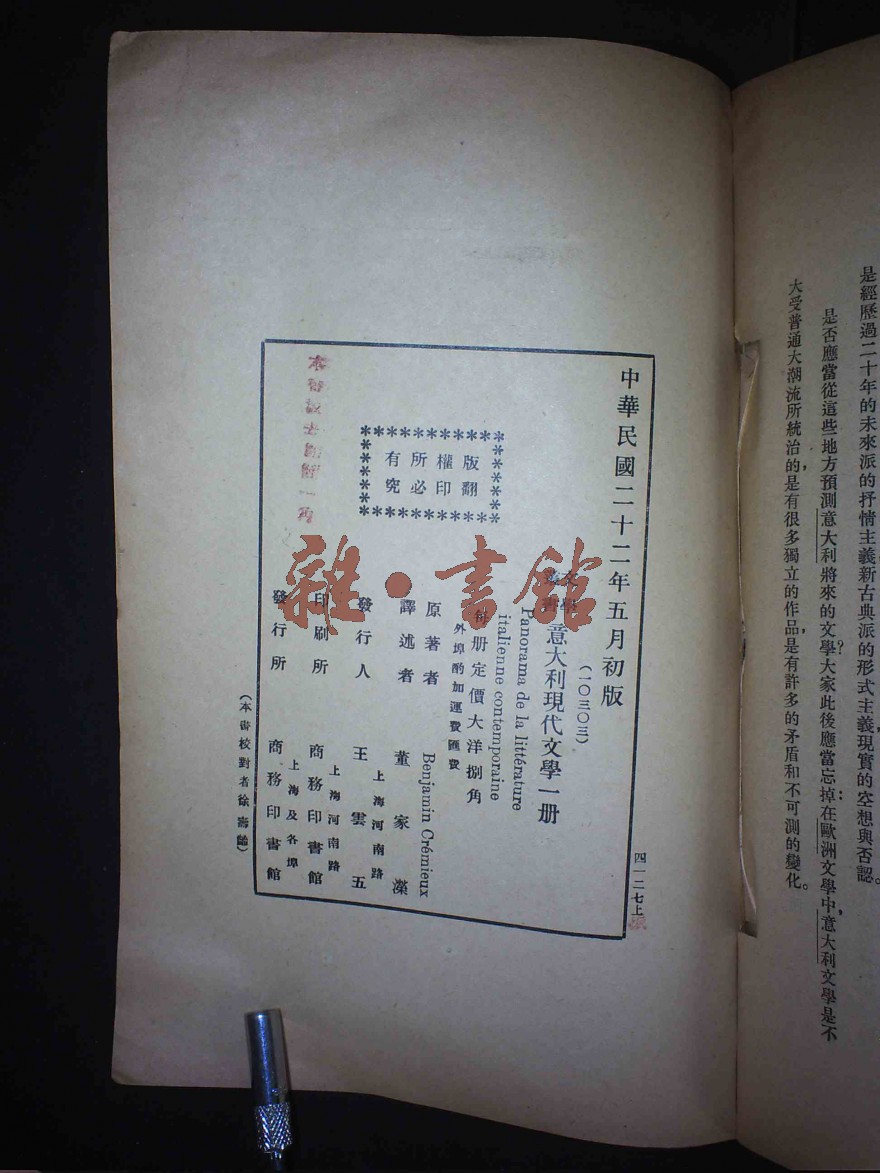 是經歷過二十年的未來派的抒情主義新古典派的形式主義，現實的空想與否認。
是否應當從這些地方預測意大利將來的文學大家此後應當忘掉：在歐洲文學中，意大利文學是不
大受普通大潮流所統治的，是有很多獨立的作品，是有許多的矛盾和不可測的變化。
四一二七上
中華民國二十二年五月初版
(一〇三〇三)
文學
叢書
意大利現代文學一册
Panorama de la littérature
italienne contemporaine
每册定價大洋捌角
外埠酌加運費匯費
版權所有
翻印必究
原著者 Benjamin Crémieux
譯述者 董家濚
發行人 王雲五
上海河南路
印刷所 商務印書館
上海河南路
發行所 商務印書館
上海及各埠
(本書校對者徐壽齡)
雜·書館